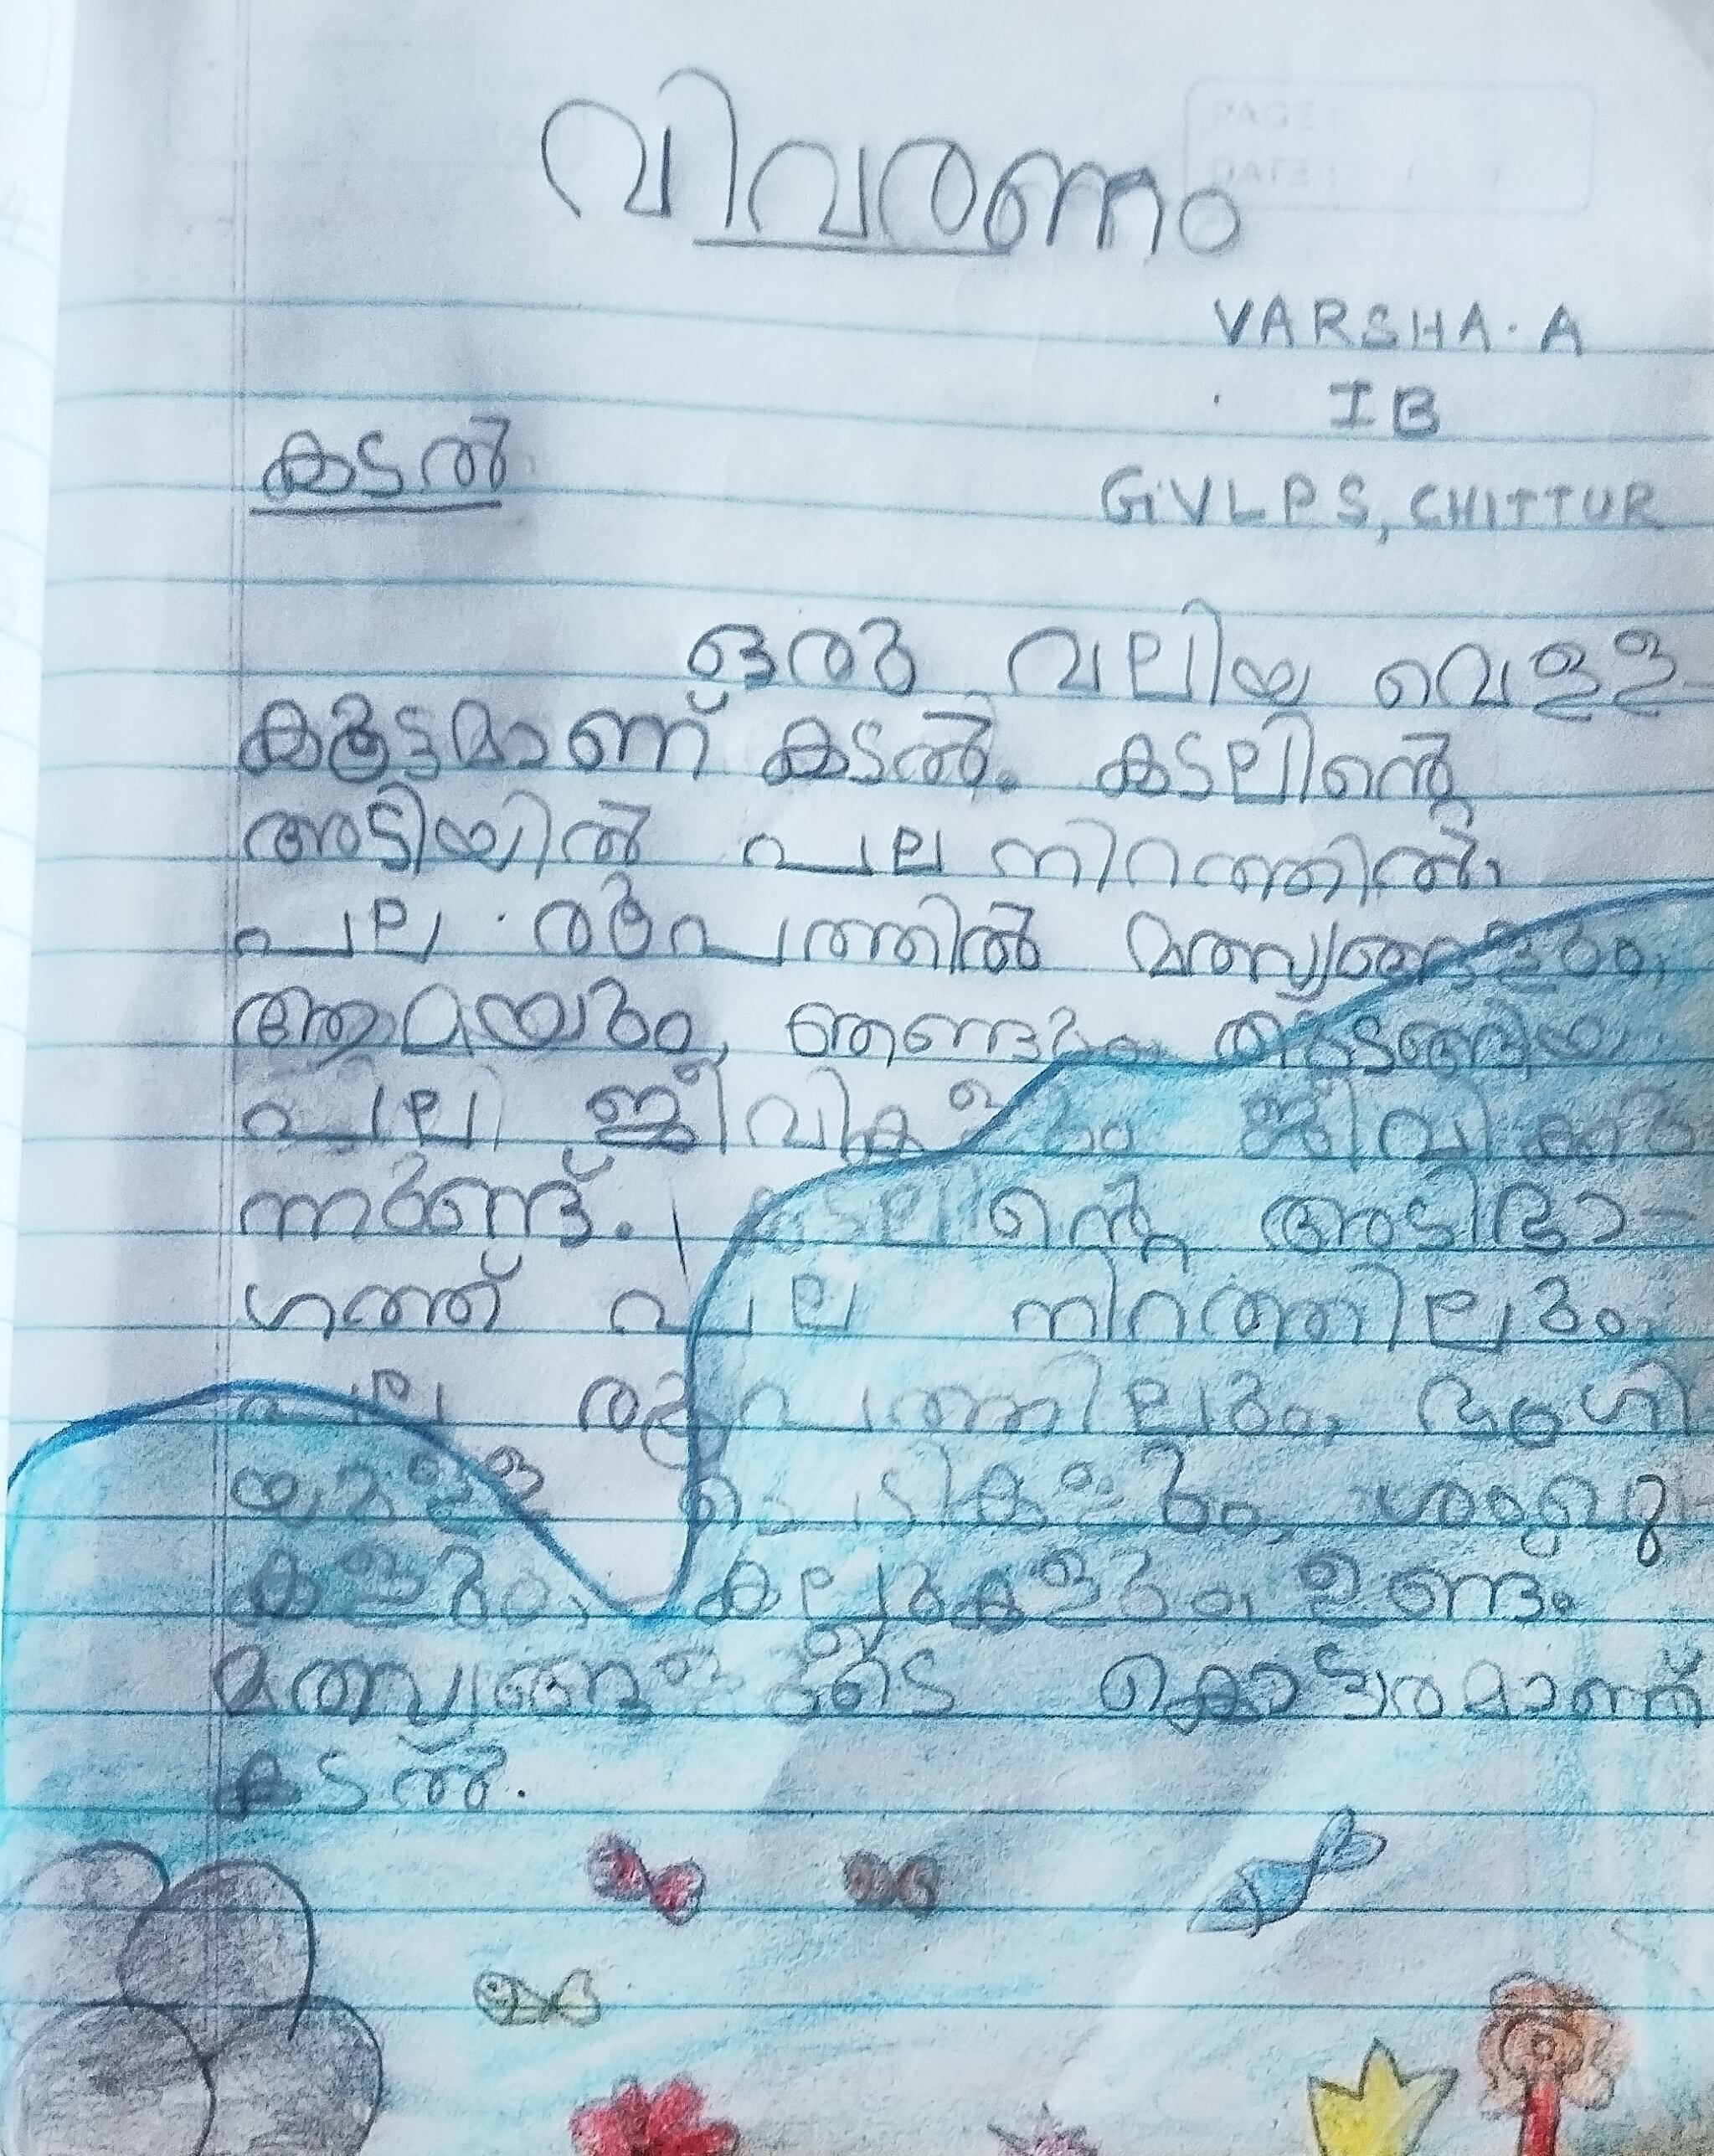 വിവരണം
PAGE :
DATE : / /
VARSHA. A
I B
കടൽ
GVLPS, CHITTUR
ഒരു വലിയ വെള്ള
കൂട്ടമാണ് കടൽ. കടലിന്റെ
അടിയിൽ പല നിറത്തിൽ,
പല രൂപത്തിൽ മത്സ്യങ്ങളും,
ആമയും, ഞണ്ടും തുടങ്ങിയ
പല ജീവികളും ജീവിക്കു
ന്നുണ്ട്. കടലിന്റെ അടിഭാ-
ഗത്ത് പല നിറത്തിലും,
പല രൂപത്തിലും, ഭംഗി
യുള്ള ചെടികളും,
കളും, കല്ലുകളും, ഉണ്ട്.
മത്സ്യങ്ങളുടെ കൊട്ടാരമാണ്
കടൽ.